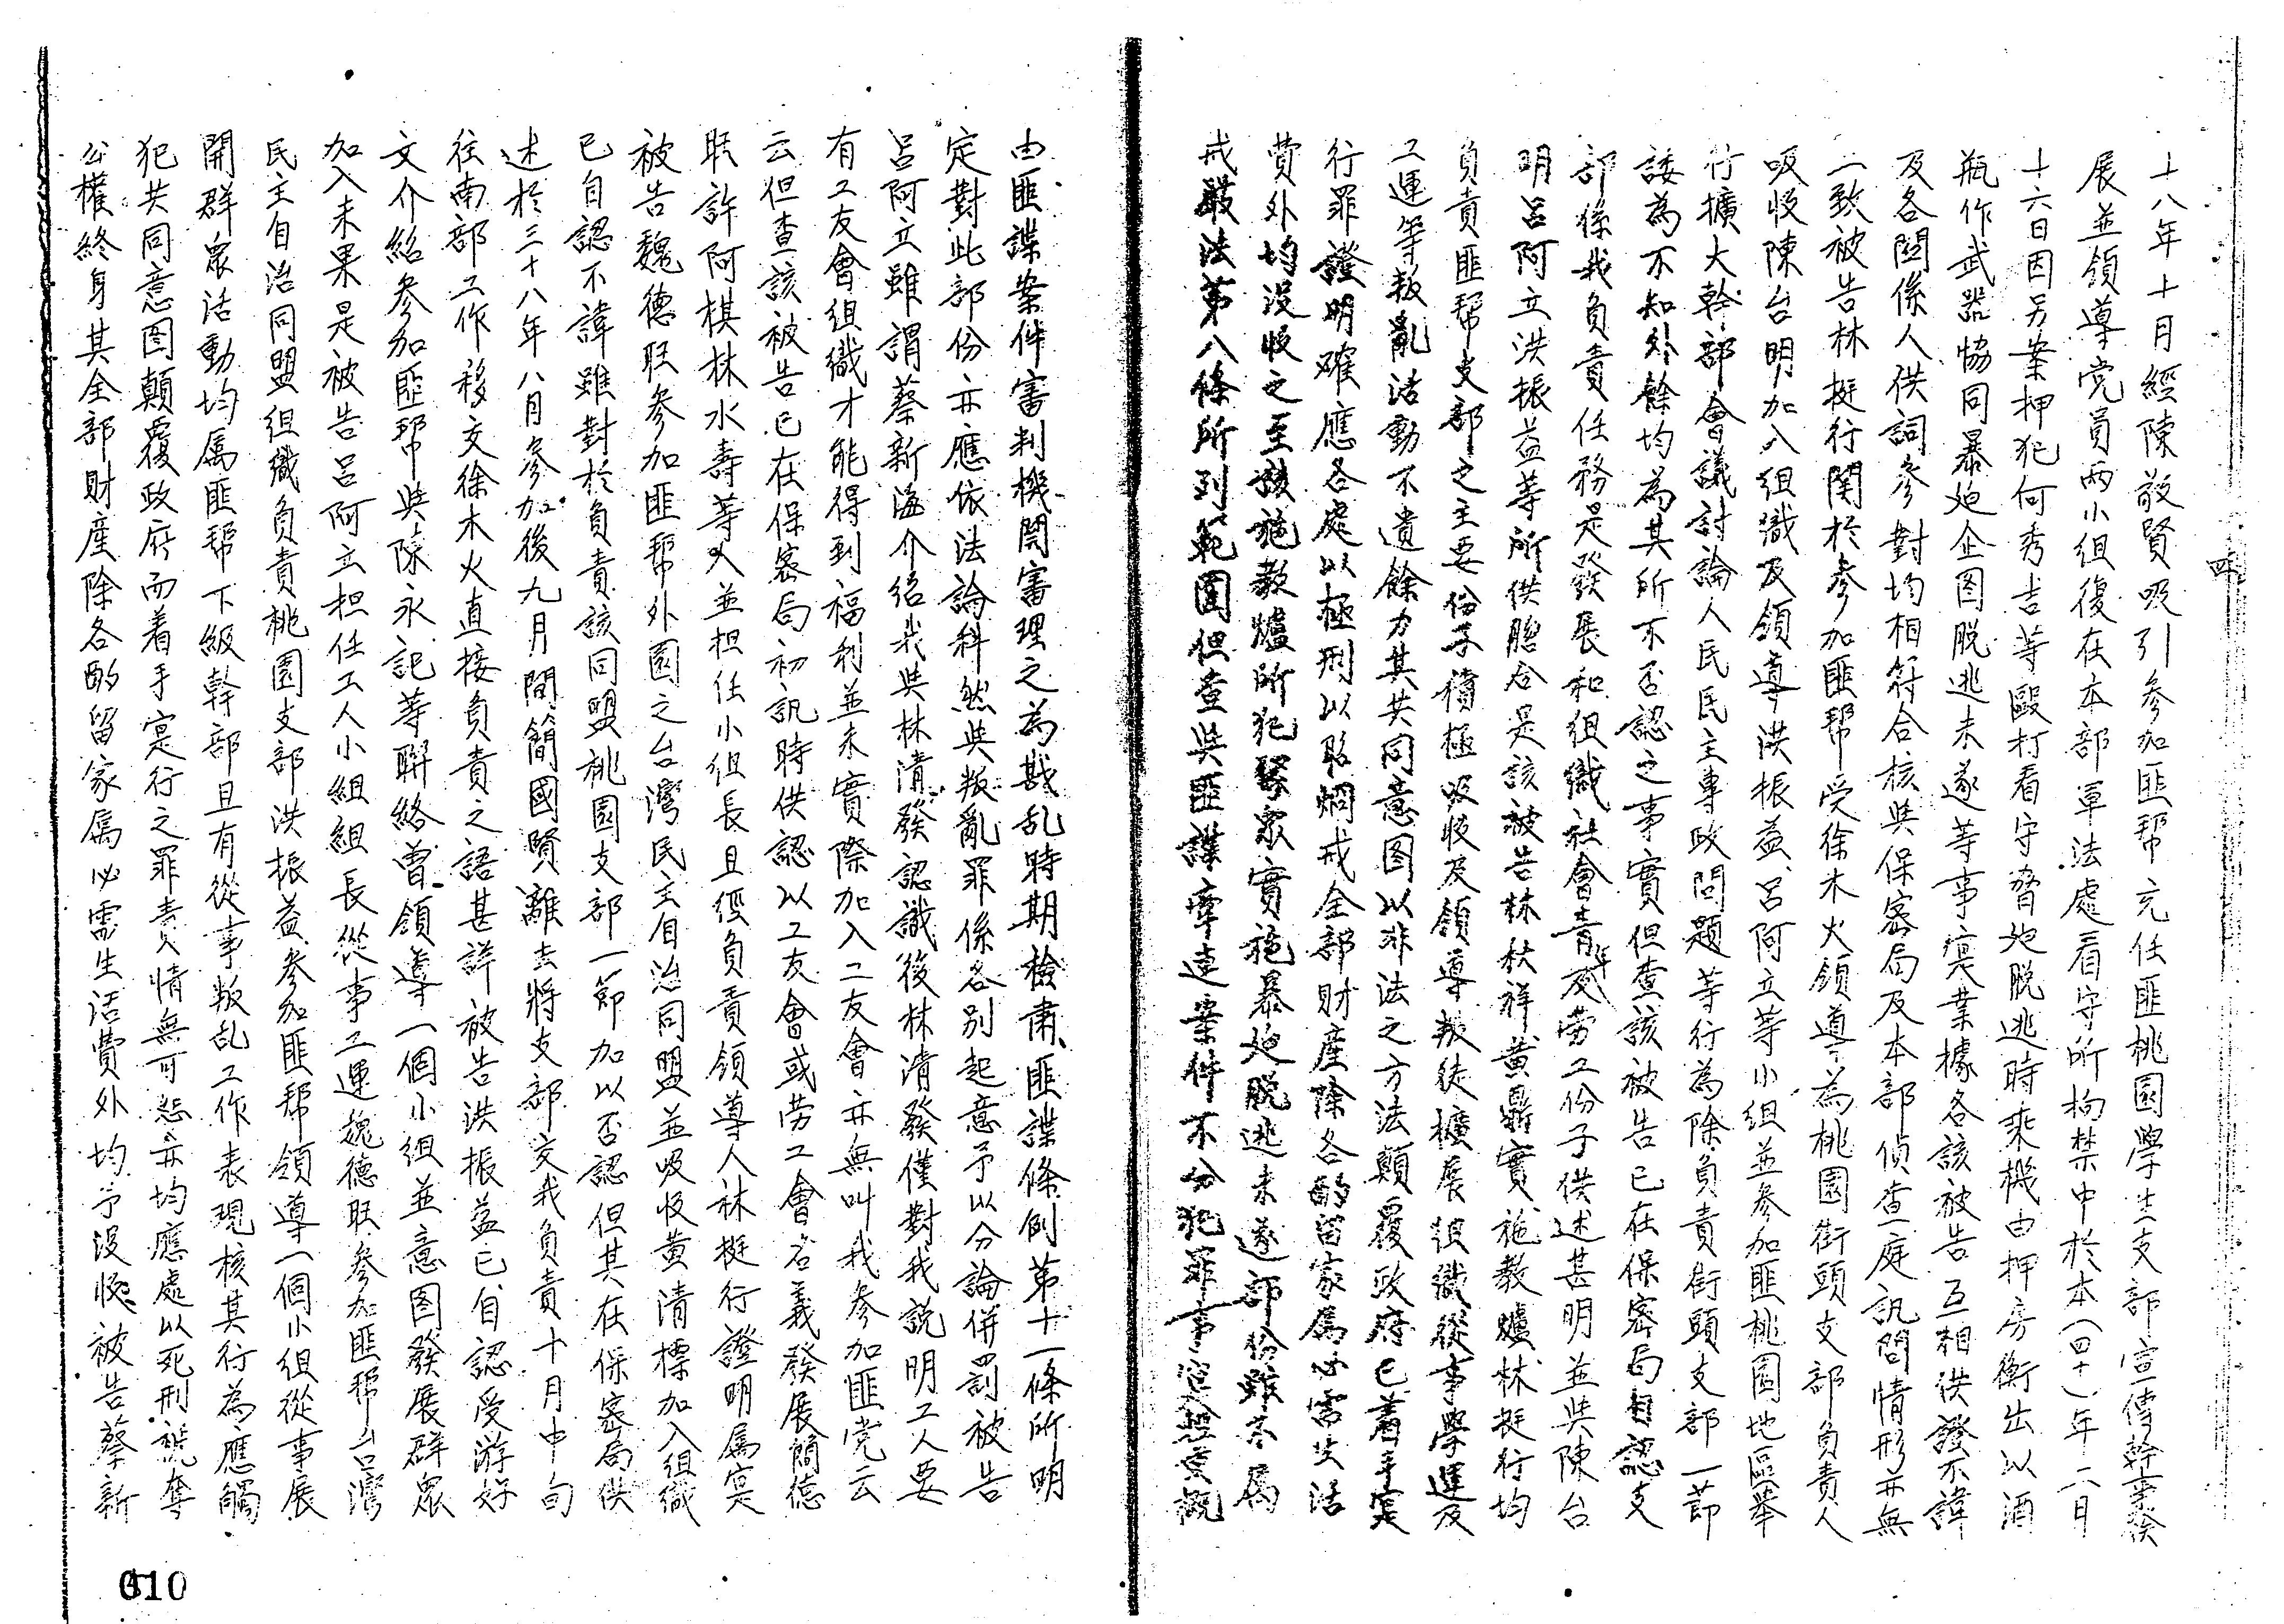 四
十八年十月經陳敬賢吸引參加匪幫充任匪桃園學生支部宣傳幹事發
展並領導党員兩小組復在本部軍法處看守所拘禁中於本(四十)年二月
十六日因另案押犯何秀吉等毆打看守脅迫脫逃時乘機由押房衝出以酒
瓶作武器協同暴迫企图脫逃未遂等事實業據各該被告互相供證不諱
及各關係人供詞參對均相符合核與保密局及本部偵查庭訊問情形亦無
二致被告林挺行関於參加匪幫受徐木火領導為桃園街頭支部負責人
吸收陳台明加入組織及領導洪振益呂阿立等小組並參加匪桃園地區舉
行擴大幹部會議討論人民民主專政問題等行為除負責街頭支部一節
諉為不知外餘均為其所不否認之事實但查該被告已在保密局自認支
部係我負責任務是發展和組織社會青年及勞工份子供述甚明並與陳台
明呂阿立洪振益等所供脗合是該被告林秋祥黃鼎實施教爐林挺行均
負責匪幫支部之主要份子積極吸收及領導叛徒擴展組織從事學運及
工運等叛亂活動不遺餘力其共同意图以非法之方法顛覆政府已着手实
行罪證明確應各處以極刑以昭烱戒全部財產除各酌留家属必需生活
費外均沒收之至該施教爐所犯聚眾實施暴迫脫逃未遂部份雖不属
戒嚴法第八條所列範圍但查與匪諜牽連案件不分犯罪事實輕重概
由匪諜案件審判機関審理之為戡乱時期檢肅匪諜條例第十一條所明
定對此部份亦應依法論科然與叛亂罪係各別起意予以分論併罰被告
呂阿立雖謂蔡新海介紹我與林清發認識後林清發僅對我說明工人要
有工友會組織才能得到福利並未實際加入工友會亦無叫我參加匪党云
云但查該被告已在保密局初訊時供認以工友會或勞工會名義發展簡德
旺許阿棋林水壽等人並担任小組長且經負責領導人林挺行證明属寔
被告魏德旺參加匪幫外圍之台灣民主自治同盟並吸收黃清標加入組織
已自認不諱雖對於負責該同盟桃園支部一節加以否認但其在保密局供
述於三十八年八月參加後九月間簡國賢離去將支部交我負責十月中旬
往南部工作移交徐木火直接負責之語甚詳被告洪振益已自認受游好
文介紹參加匪幫與陳永記等聯絡曾領導一個小組並意图發展群眾
加入未果是被告呂阿立担任工人小組組長從事工運魏德旺參加匪幫台灣
民主自治同盟組織負責桃園支部洪振益參加匪幫領導一個小組從事展
開群眾活動均属匪幫下級幹部且有從事叛乱工作表現核其行為應觸
犯共同意图顛覆政府而着手寔行之罪責情無可恕亦均應處以死刑褫奪
公權終身其全部財產除各酌留家属必需生活費外均予沒收被告蔡新
010